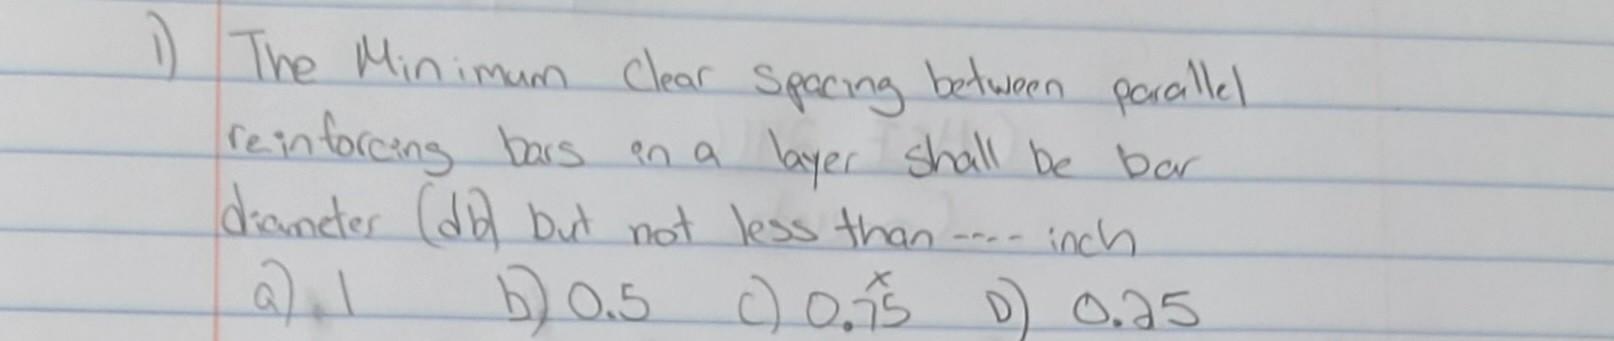 1) The Minimum Clear Spacing between parallel
reinforcing bars in a layer shall be bar
diameter (db) but not less than ---- inch
a) 1 b) 0.5 c) 0.75 D) 0.25